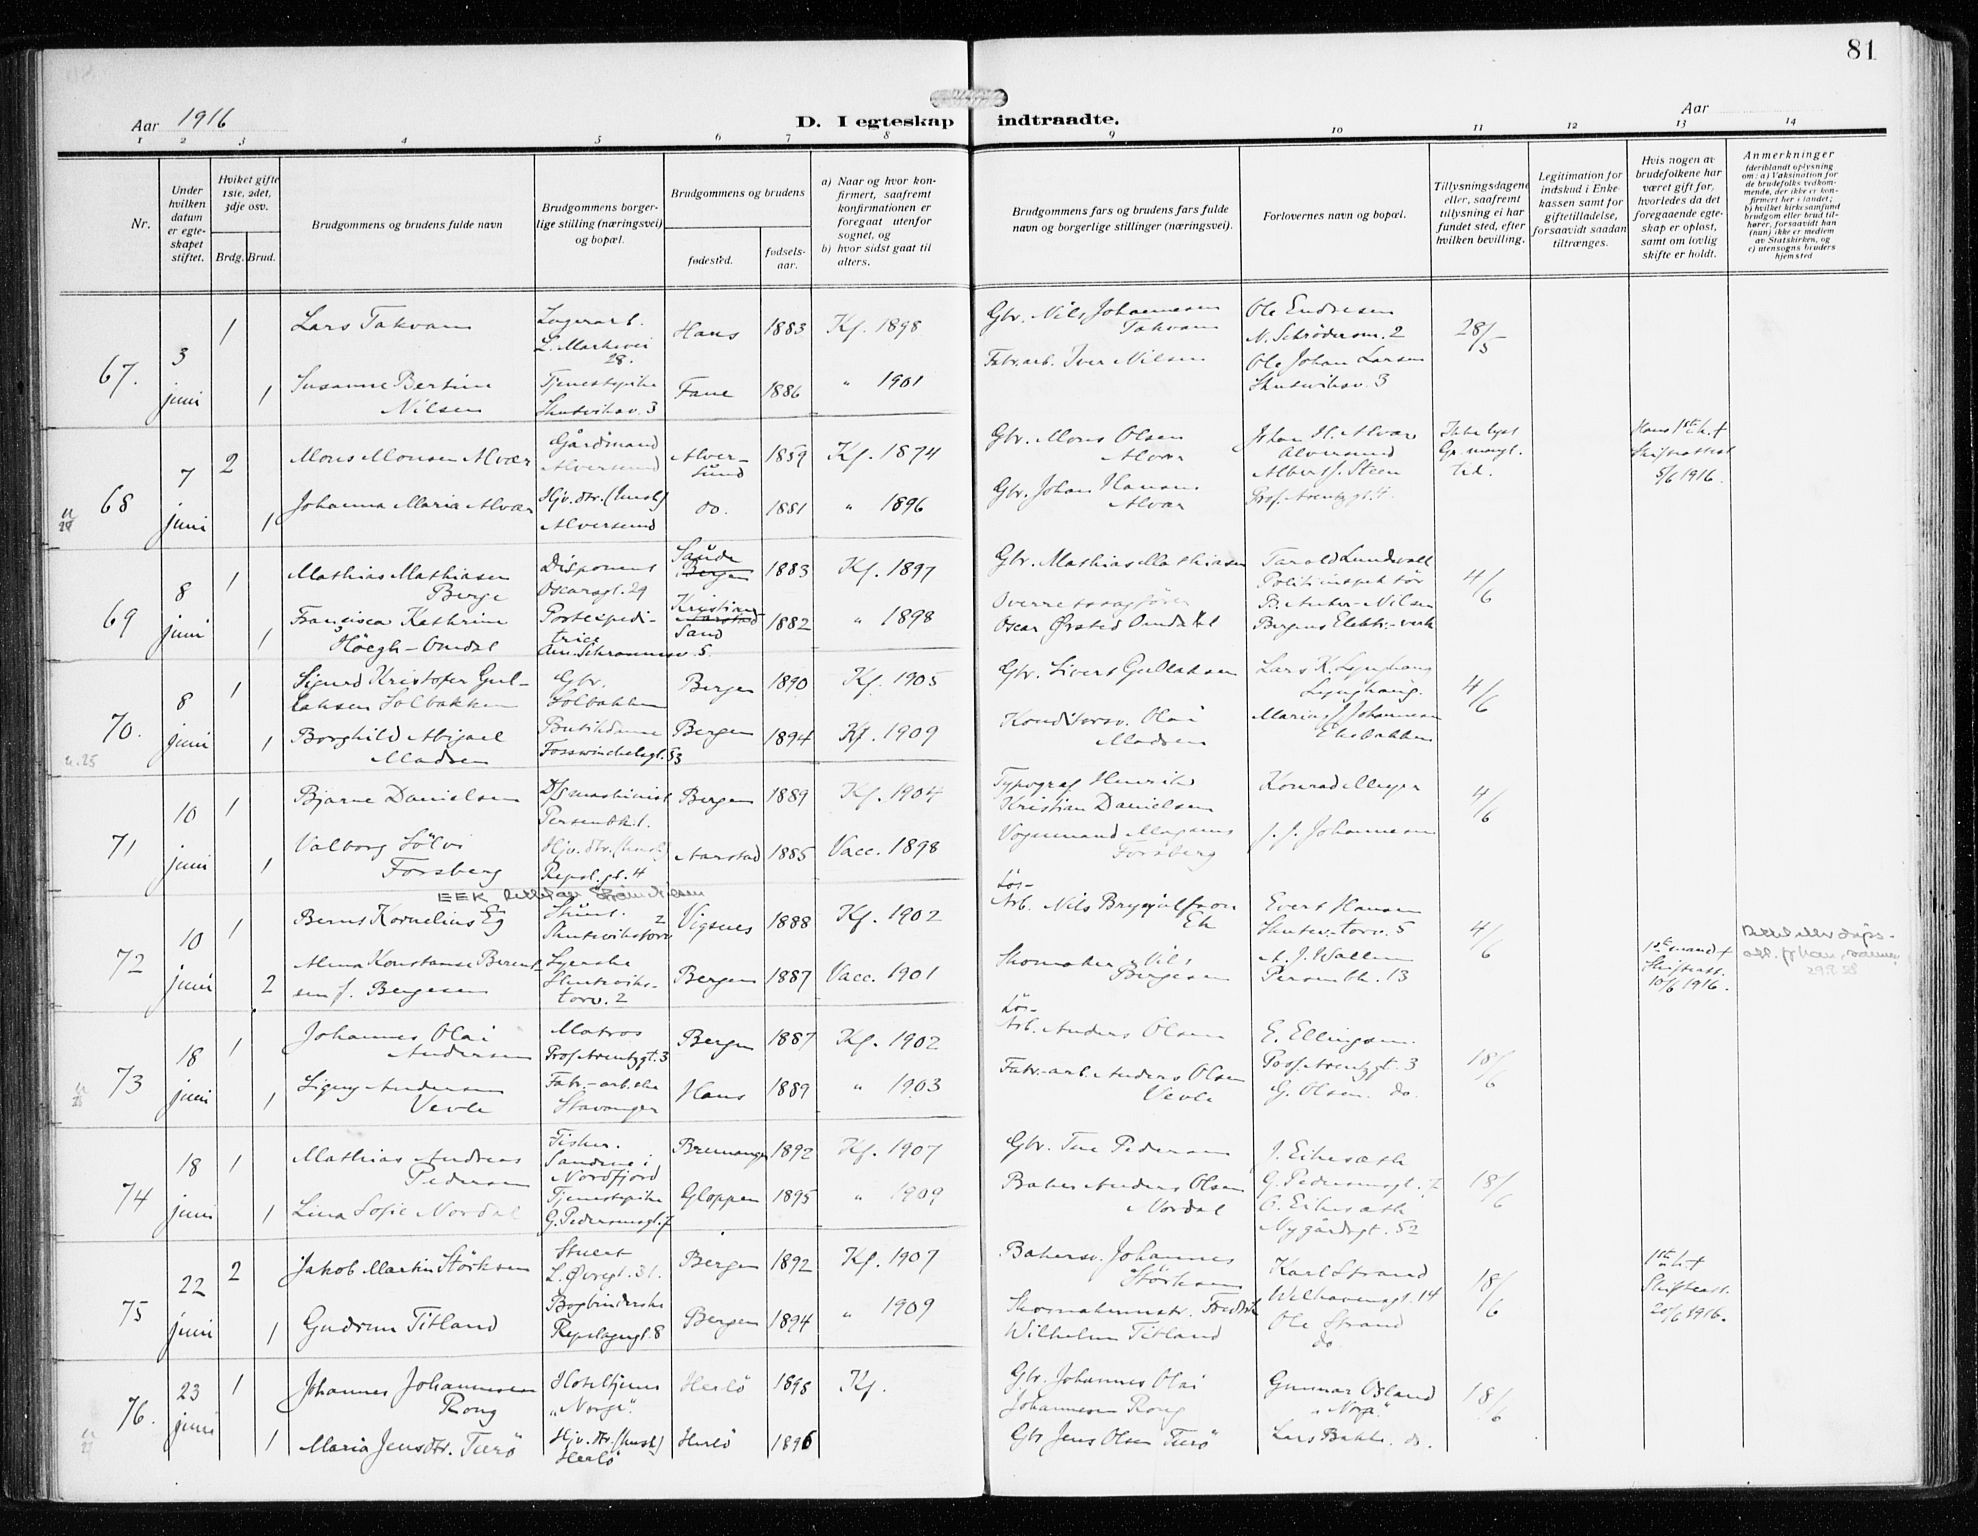 81
Aar 1916
D. I egteskap indtraadte.
Aar
1 2 3 4 5 6 7 8 9 10 11 12 13 14
Nr.
Under hvilken datum er egteskapet stiftet.
Hviket gifte 1ste, 2det, 3dje osv.
Brdg. Brud.
Brudgommens og brudens fulde navn
Brudgommens borgerlige stilling (næringsvei) og bopæl.
Brudgommens og brudens
fødested.
fødselsaar.
a) Naar og hvor konfirmert, saafremt konfirmationen er foregaat utenfor sognet, og
b) hvor sidst gaat til alters.
Brudgommens fars og brudens fars fulde navn og borgerlige stillinger (næringsvei).
Forlovernes navn og bopæl.
Tillysningsdagene eller, saafremt tillysning ei har fundet sted, efter hvilken bevilling.
Legitimation for indskud i Enkekassen samt for giftetilladelse, forsaavidt saadan tiltrænges.
Hvis nogen av brudefolkene har været gift før, hvorledes da det foregaaende egteskap er opløst, samt om lovlig skifte er holdt.
Anmerkninger
(deriblandt oplysning om: a) Vaksination for de brudefolks vedkommende, der ikke er konfirmert her i landet; b) hvilket kirkesamfund brudgom eller brud tilhører, forsaavidt han (hun) ikke er medlem av Statskirken, og c) utensogns bruders hjemsted
67. 3 juni
1 Lars Takvam Lagerarb. L. Markevei 28. Hans 1883 Kf. 1898 Gbr. Nils Johannesen Takvam Ole Endresen 28/5
1 Susanne Bertine Nilsen Tjenestepike Skuteviksv. 3 Fane 1886 " 1901 Fabr.arb. Iver Nilsen Ole Johan Larsen Skuteviksv. 3
68 7 juni
2 Mons Monsen Alvær Gårdmand Alversund Alversund 1859 Kf. 1874 Gbr. Mons Olsen Alvær Johan H. Alvær Alversund Ikke lyst Gr. mangl. tid. Hans 1ste h. + Skifteattest 5/6 1916.
1 Johanna Maria Alvær Hjv. dtr. (hush) Alversund do. 1881 " 1896 Gbr. Johan Hansen Alvær Albert J. Steen Prof. Arentzgt. 4
69 8 juni
1 Mathias Mathiasen Berge Disponent Oscarsgt. 29 Sande Bergen 1883 Kf. 1897 Gbr. Mathias Mathiasen Tarald Lundvall Politiinspektør 4/6
1 Francisca Kathrine Höegh-Omdal Postexpeditrice Kristiansand Aarstad 1882 " 1898 Overretssagfører Oscar Ørsted Omdal Bergens Elektr.-verk
70. 8 juni
1 Sigurd Kristofer Gullaksen Solbakken Gbr. Solbakken Bergen 1890 Kf. 1905 Gbr. Sivert Gullaksen Lars K. Lynghaug Lynghaug. 4/6
1 Borghild Abigael Madsen Butikdame Fosswinckelsgt. 53 Bergen 1894 Kf. 1909 Konditorsv. Olai Madsen Marius J. Johannesen
71 10 juni
1 Bjarne Danielsen D/S maskinist Persenbk. 1. Bergen 1889 Kf. 1904 Typograf Henrik Kristian Danielsen Konrad Meyer 4/6
1 Valborg Sölvi Forsberg Hjv. dtr. (hush) Repsl.gt. 4 Aarstad 1885 Vacc. 1898 Vognmand Magnus Forsberg J. J. Johannesen
EEK
72 10 juni
1 Berns Kornelius Eg Skutevikstorv 2 Vigsnes 1888 Kf. 1902 Løs-Arb. Nils Brynjulfson Ek Evert Hansen Skutev. torv. 5 4/6
2 Alma Konstanse Berentsen f. Bergesen Syerske Skutevikstorv. 2 Bergen 1887 Vacc. 1901 Skomaker Nils Bergesen A. J. Wallem Persenbk. 13 1ste mand + Skifteatt. 10/6 1916.
73 18 juni
1 Johannes Olai Andersen Matros Prof. Arentzgt. 3 Bergen 1887 Kf. 1902 Løs-Arb. Anders Olsen E. Ellingsen. Prof. Arentzgt. 3 18/6
1 Signy Andersen Vevle Fabr.-arb.ske Stavanger Hans 1889 " 1903 Fabr.-arb. Anders Olsen Vevle G. Olsen. do.
74 18 juni
1 Mathias Andreas Pedersen Fisker. Sandene i Nordfjord Bremanger 1892 Kf. 1907 Gbr. Tue Pedersen J. Eikesæth G. Pedersensgt. 7 18/6
1 Lina Sofie Nordal Tjenestepike G. Pedersensgt. 7 Gloppen 1895 " 1909 Baker Anders Olsen Nordal O. Eikesæth Nygårdsgt. 52
75 22 juni
2 Jakob Martin Störksen Stuert L. Øvregt. 31. Bergen 1892 Kf. 1907 Bakersv. Johannes Störksen Karl Strand Welhavensgt. 14 18/6 1ste h. + Skifteatt. 20/6 1916.
1 Gudrun Titland Bogbinderske Repslagergt. 8 Bergen 1894 " 1909 Skomakermstr. Fredrik Wilhelm Titland Ole Strand do
76. 23 juni
1 Johannes Johannesen Rong Hoteltjener "Norge". Herlö 1898 Kf. Gbr. Johannes Olai Johannesen Rong Gunnar Osland "Norge". 18/6
1 Maria Jensdtr. Turö Hjv. dtr. (hush) Herlö Herlö 1896 Gbr Jens Olsen Turö Lars Bakke. do.